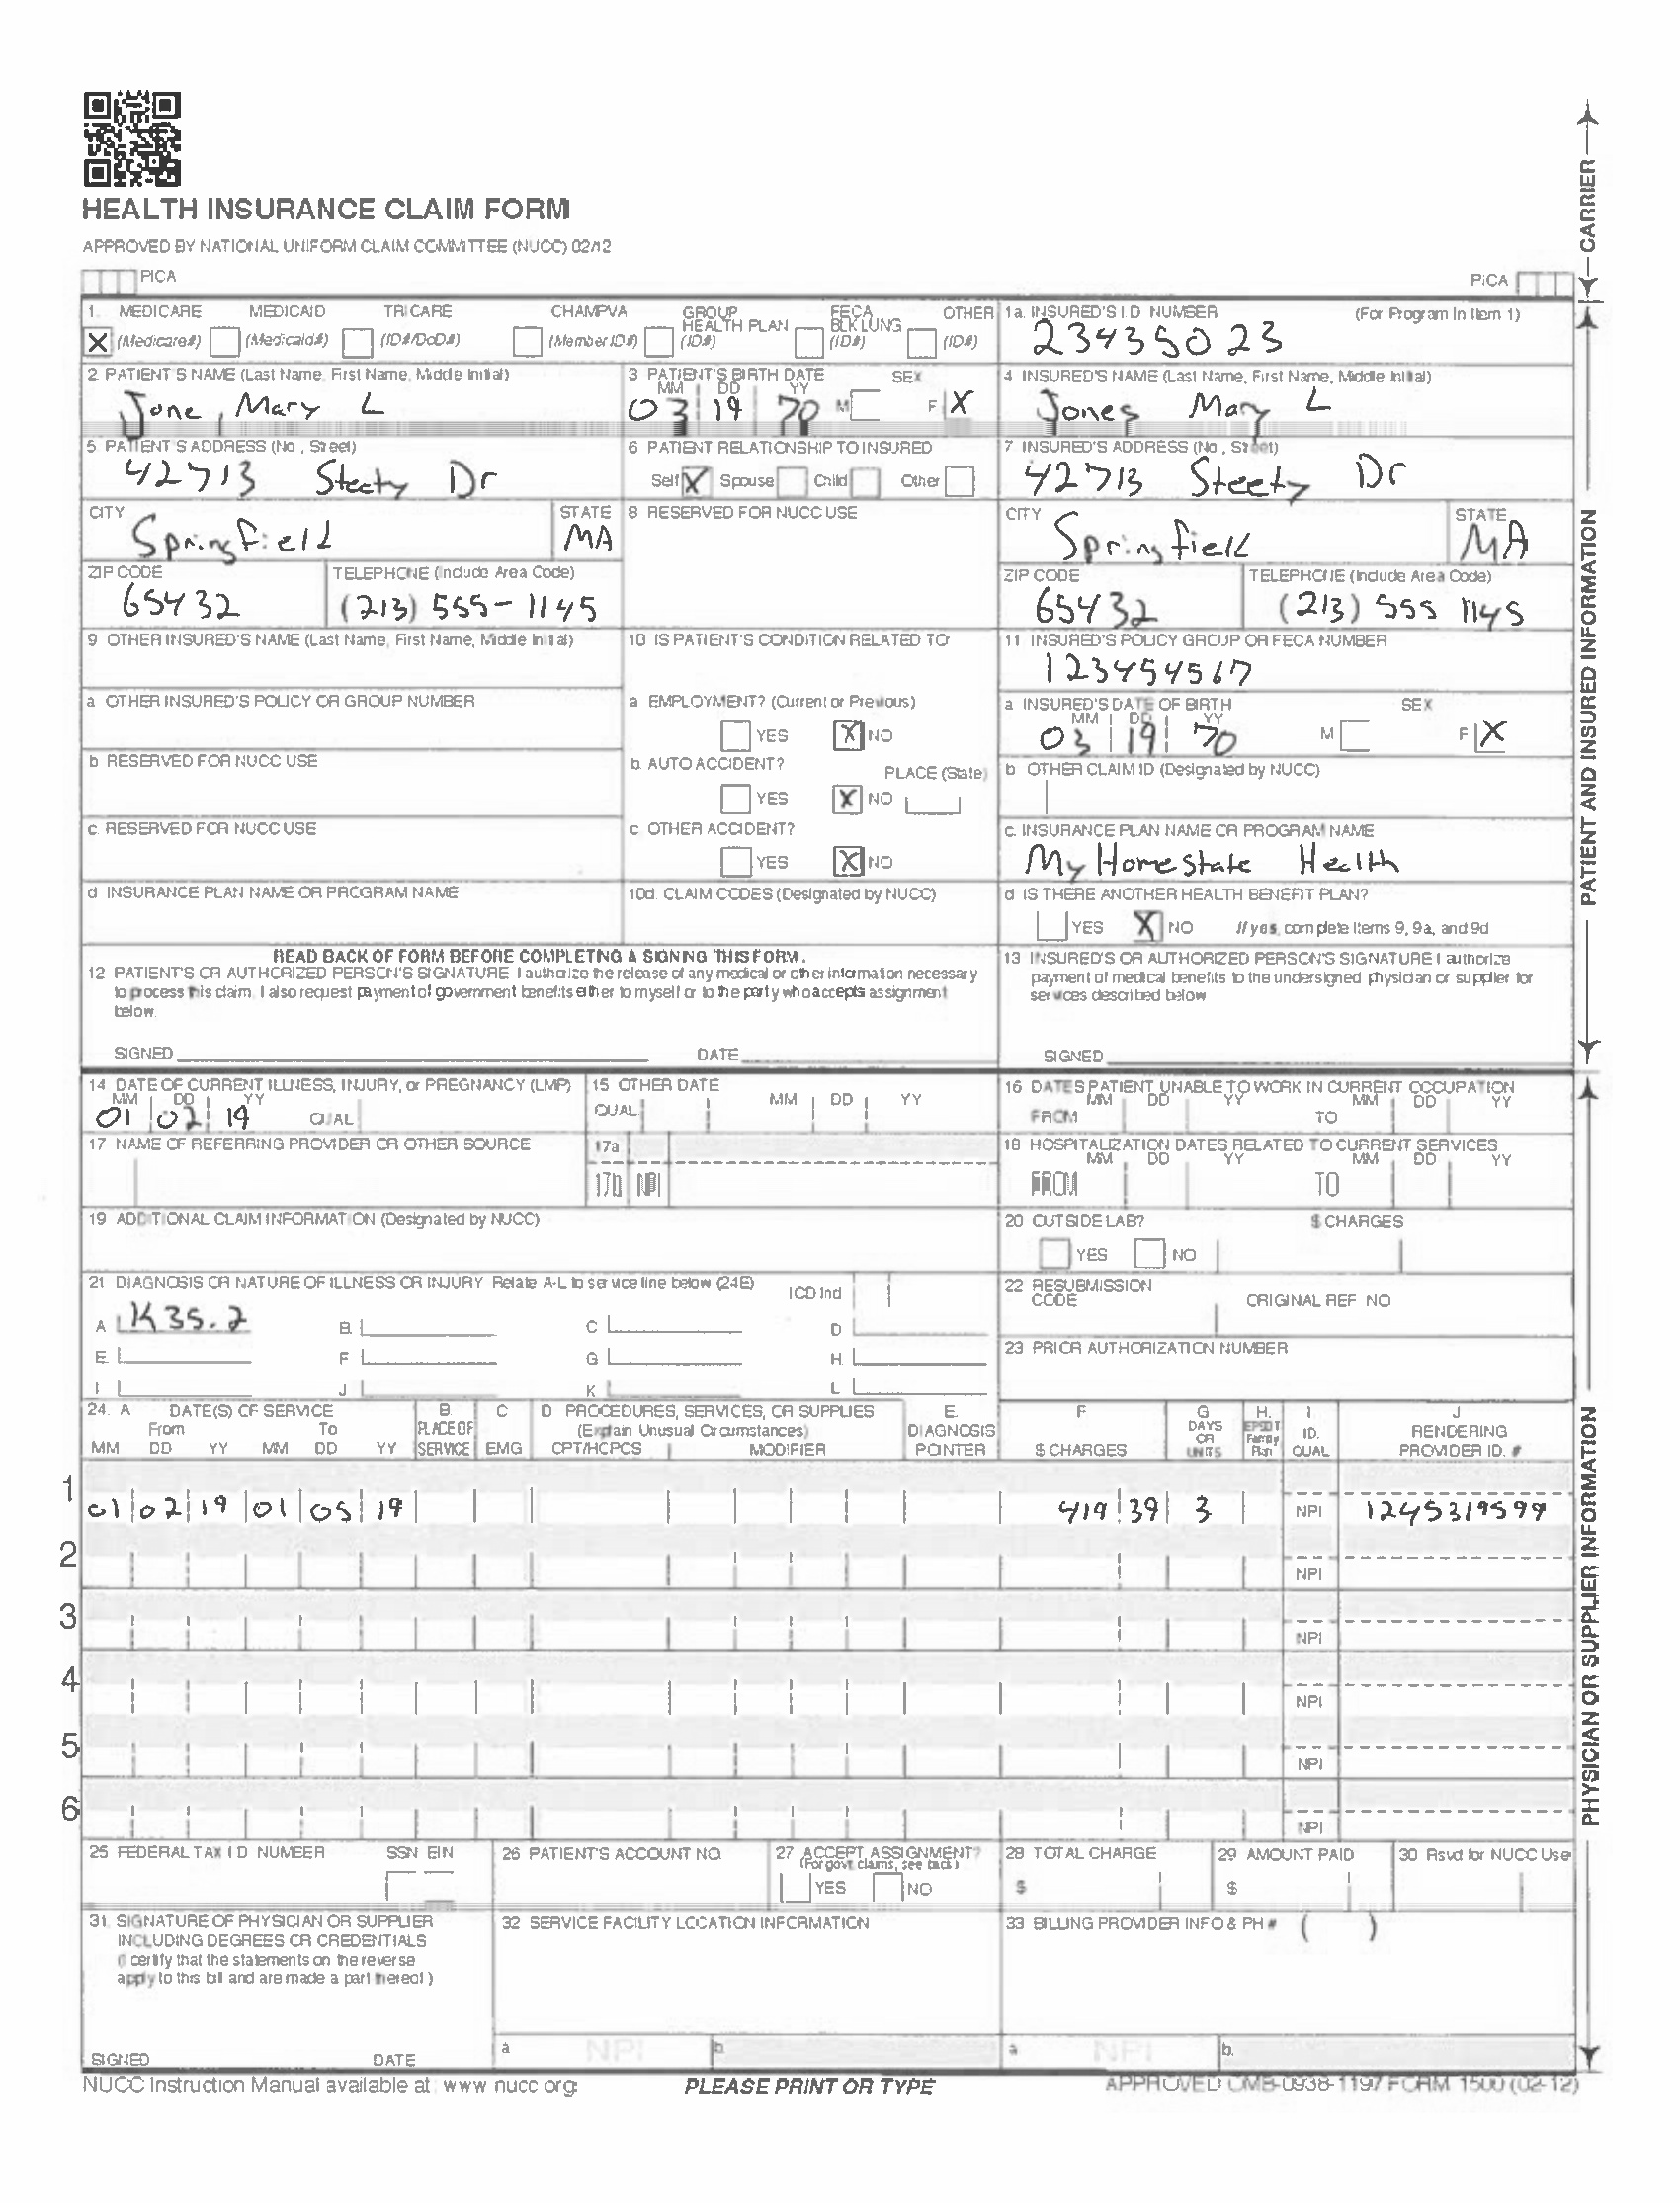 HEALTH INSURANCE CLAIM FORM
APPROVED BY NATIONAL UNIFORM CLAIM COMMITTEE (NUCC) 02/12
PICA
PICA
CARRIER
1. MEDICARE MEDICAID TRICARE CHAMPVA GROUP HEALTH PLAN FECA BLK LUNG OTHER
X (Medicare#) (Medicaid#) (ID#/DoD#) (Member ID#) (ID#) (ID#) (ID#)
1a. INSURED'S I.D. NUMBER (For Program In Item 1)
23435023
2. PATIENT'S NAME (Last Name, First Name, Middle Initial)
Jone, Mary L
3 PATIENT'S BIRTH DATE SEX
MM DD YY
03 19 70 M F X
4 INSURED'S NAME (Last Name, First Name, Middle Initial)
Jones Mary L
5 PATIENT'S ADDRESS (No., Street)
42713 Steety Dr
6 PATIENT RELATIONSHIP TO INSURED
Self X Spouse Child Other
7 INSURED'S ADDRESS (No., Street)
42713 Steety Dr
CITY STATE
Springfield MA
8 RESERVED FOR NUCC USE
CITY STATE
Springfield MA
ZIP CODE TELEPHONE (Include Area Code)
65432 (213) 555-1145
ZIP CODE TELEPHONE (Include Area Code)
65432 (213) 555 1145
9 OTHER INSURED'S NAME (Last Name, First Name, Middle Initial)
10 IS PATIENT'S CONDITION RELATED TO
11 INSURED'S POLICY GROUP OR FECA NUMBER
123454567
a OTHER INSURED'S POLICY OR GROUP NUMBER
a EMPLOYMENT? (Current or Previous)
YES X NO
a INSURED'S DATE OF BIRTH SEX
MM DD YY
03 19 70 M F X
b RESERVED FOR NUCC USE
b. AUTO ACCIDENT? PLACE (State)
YES X NO
b OTHER CLAIM ID (Designated by NUCC)
c. RESERVED FOR NUCC USE
c OTHER ACCIDENT?
YES X NO
c. INSURANCE PLAN NAME OR PROGRAM NAME
My Home State Health
d INSURANCE PLAN NAME OR PROGRAM NAME
10d. CLAIM CODES (Designated by NUCC)
d IS THERE ANOTHER HEALTH BENEFIT PLAN?
YES X NO If yes, complete items 9, 9a, and 9d
PATIENT AND INSURED INFORMATION
READ BACK OF FORM BEFORE COMPLETING & SIGNING THIS FORM.
12 PATIENT'S OR AUTHORIZED PERSON'S SIGNATURE I authorize the release of any medical or other information necessary
to process this claim. I also request payment of government benefits either to myself or to the party who accepts assignment
below.
SIGNED DATE
13 INSURED'S OR AUTHORIZED PERSON'S SIGNATURE I authorize
payment of medical benefits to the undersigned physician or supplier for
services described below
SIGNED
14 DATE OF CURRENT ILLNESS, INJURY, or PREGNANCY (LMP)
MM DD YY
01 02 19 QUAL
15 OTHER DATE
QUAL MM DD YY
16 DATES PATIENT UNABLE TO WORK IN CURRENT OCCUPATION
MM DD YY MM DD YY
FROM TO
17 NAME OF REFERRING PROVIDER OR OTHER SOURCE
17a
17b NPI
18 HOSPITALIZATION DATES RELATED TO CURRENT SERVICES
MM DD YY MM DD YY
FROM TO
19 ADDITIONAL CLAIM INFORMATION (Designated by NUCC)
20 OUTSIDE LAB? $ CHARGES
YES NO
21 DIAGNOSIS OR NATURE OF ILLNESS OR INJURY Relate A-L to service line below (24E) ICD Ind
A K35.2 B. C D
E. F G H.
I J K L
22 RESUBMISSION CODE ORIGINAL REF NO
23 PRIOR AUTHORIZATION NUMBER
24. A DATE(S) OF SERVICE B. C D PROCEDURES, SERVICES, OR SUPPLIES E. F G H. I J
From To PLACE OF (Explain Unusual Circumstances) DIAGNOSIS DAYS OR EPSDT Family ID. RENDERING
MM DD YY MM DD YY SERVICE EMG CPT/HCPCS MODIFIER POINTER $ CHARGES UNITS Plan QUAL PROVIDER ID. #
1 01 02 19 01 05 19 419 39 3 NPI 1245319599
2 NPI
3 NPI
4 NPI
5 NPI
6 NPI
25 FEDERAL TAX I D NUMBER SSN EIN
26 PATIENT'S ACCOUNT NO.
27 ACCEPT ASSIGNMENT?
(For govt. claims, see back)
YES NO
28 TOTAL CHARGE
$
29 AMOUNT PAID
$
30 Rsvd for NUCC Use
31. SIGNATURE OF PHYSICIAN OR SUPPLIER
INCLUDING DEGREES OR CREDENTIALS
(I certify that the statements on the reverse
apply to this bill and are made a part thereof.)
SIGNED DATE
32 SERVICE FACILITY LOCATION INFORMATION
a NPI b.
33 BILLING PROVIDER INFO & PH # ( )
a NPI b.
PHYSICIAN OR SUPPLIER INFORMATION
NUCC Instruction Manual available at: www.nucc.org
PLEASE PRINT OR TYPE
APPROVED OMB-0938-1197 FORM 1500 (02-12)